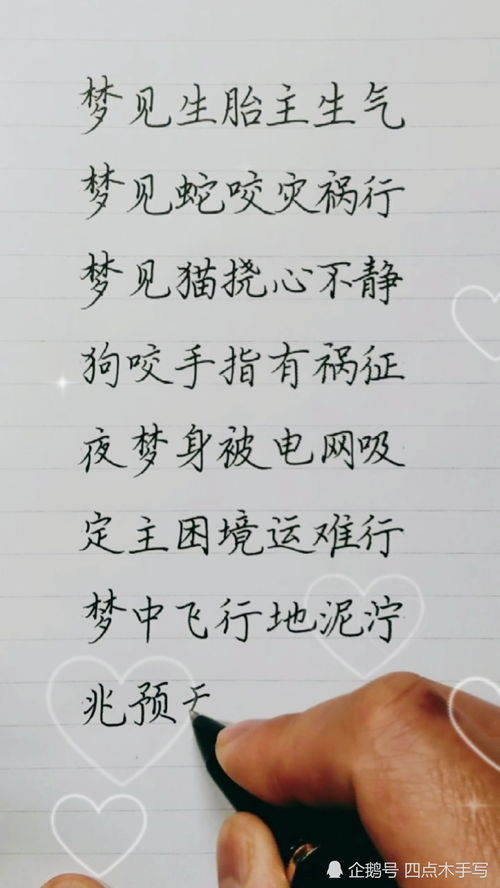 梦见生胎主生气
梦见蛇咬灾祸行
梦见猫挠心不静
狗咬手指有祸征
夜梦身被电网吸
定主困境运难行
梦中飞行地泥泞
兆预
企鹅号 四点木手写